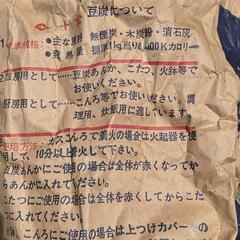 豆炭について
標準規格：
●主な原料 無煙炭・木炭粉・消石灰
●発熱量 標準1kg当り
00Kカロリー
房用として……豆炭あんか、こたつ、火鉢等で
ご使用下さい。
厨房用として……こんろ等でお使い下さい。調
理用、炊飯用に適しています。
使用方法：ガスこんろで着火の場合は火起器を使
用して、10分以上着火して下さい。
豆炭あんかにご使用の場合は全体が赤くなってか
らあんかに入れて下さい。
こたつにご使用の場合は全体を赤くしてからこた
つに入れてください。
にご使用の場合は上つけカバー